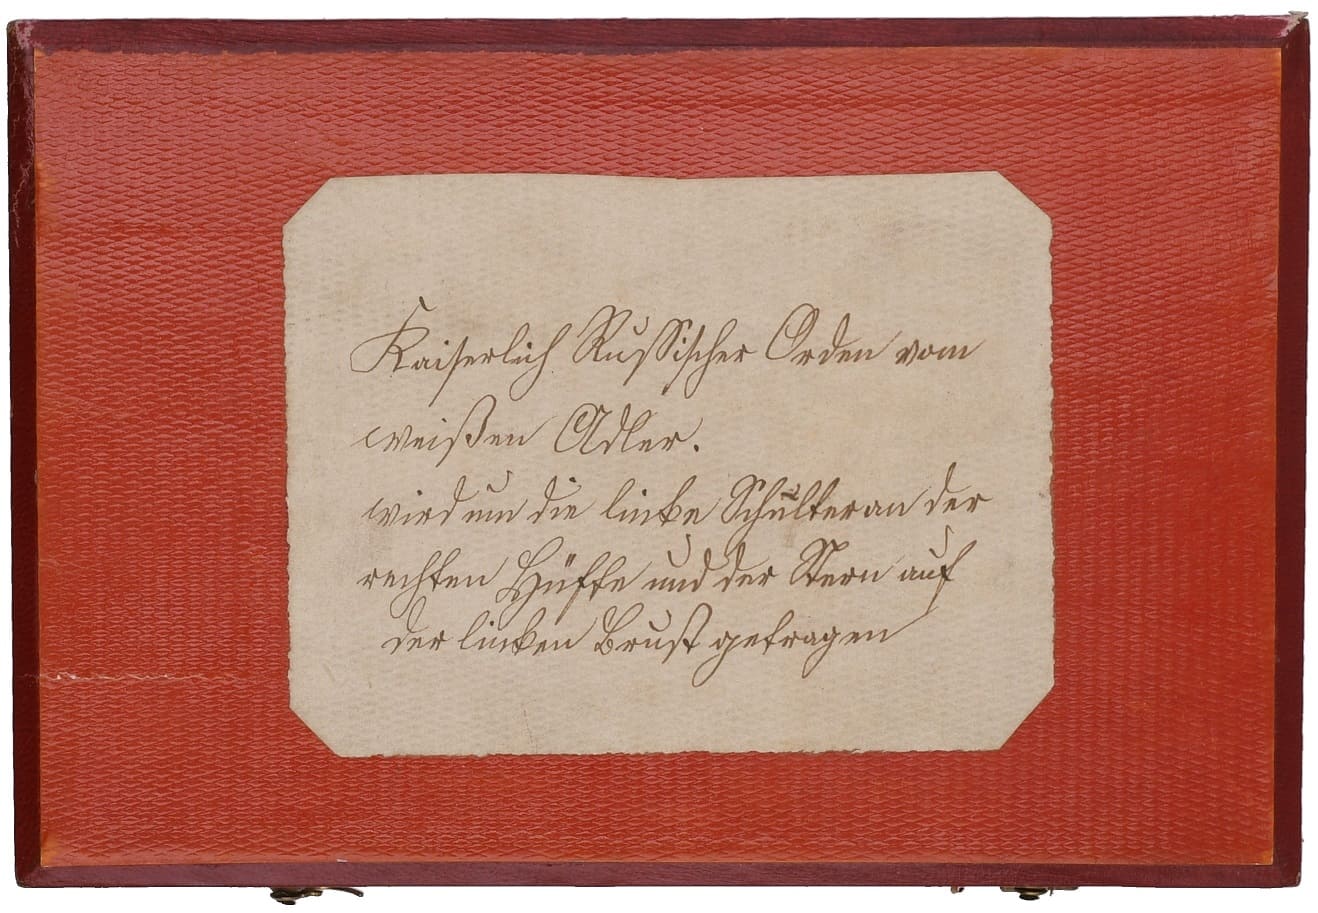 Kaiserlich Russischer Orden vom
weißen Adler.
wird um die linke Schulter an der
rechten Hüfte und der Stern auf
der linken Brust getragen